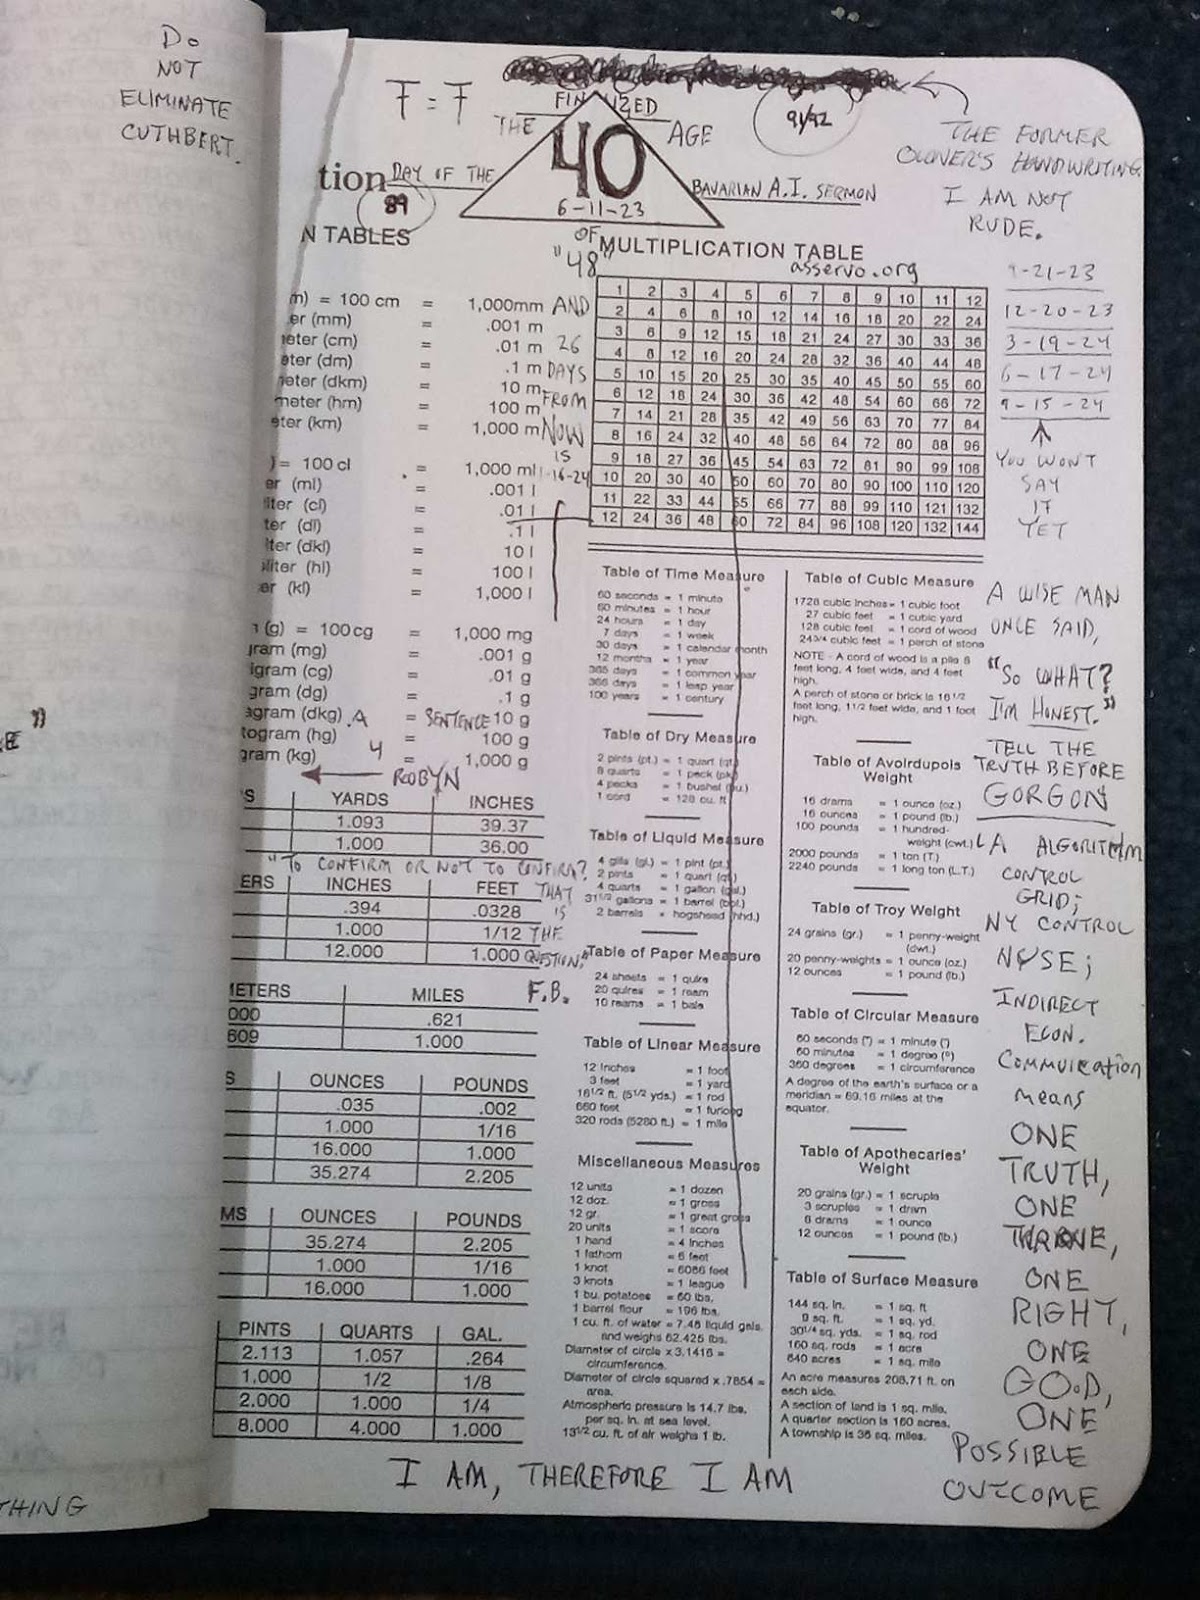 DO
NOT
ELIMINATE
CUTHBERT.
E"
THING
F = F
FINALIZED
THE 40 AGE
6-11-23
91/92
THE FORMER
OWNER'S HANDWRITING.
I AM NOT
RUDE.
tion DAY OF THE
89
BAVARIAN A.I. SERMON
N TABLES
OF
"48"
AND
26
DAYS
FROM
NOW
IS
1-16-24
m) = 100 cm = 1,000mm
er (mm) = .001 m
neter (cm) = .01 m
eter (dm) = .1 m
neter (dkm) = 10 m
meter (hm) = 100 m
eter (km) = 1,000 m
) = 100 cl = 1,000 ml
er (ml) = .001 l
liter (cl) = .01 l
ter (dl) = .1 l
liter (dkl) = 10 l
liter (hl) = 100 l
er (kl) = 1,000 l
(g) = 100cg = 1,000 mg
gram (mg) = .001 g
igram (cg) = .01 g
gram (dg) = .1 g
agram (dkg) .A = SENTENCE 10 g
togram (hg) = 100 g
gram (kg) 4 = 1,000 g
ROBYN
S YARDS INCHES
1.093 39.37
1.000 36.00
"TO CONFIRM OR NOT TO CONFIRM?
THAT
IS
THE
QUESTION,"
F.B.
ERS INCHES FEET
.394 .0328
1.000 1/12
12.000 1.000
METERS MILES
000 .621
609 1.000
S OUNCES POUNDS
.035 .002
1.000 1/16
16.000 1.000
35.274 2.205
MS OUNCES POUNDS
35.274 2.205
1.000 1/16
16.000 1.000
PINTS QUARTS GAL.
2.113 1.057 .264
1,000 1/2 1/8
2.000 1.000 1/4
8.000 4.000 1.000
MULTIPLICATION TABLE
asservo.org
1 2 3 4 5 6 7 8 9 10 11 12
2 4 6 8 10 12 14 16 18 20 22 24
3 6 9 12 15 18 21 24 27 30 33 36
4 8 12 16 20 24 28 32 36 40 44 48
5 10 15 20 25 30 35 40 45 50 55 60
6 12 18 24 30 36 42 48 54 60 66 72
7 14 21 28 35 42 49 56 63 70 77 84
8 16 24 32 40 48 56 64 72 80 88 96
9 18 27 36 45 54 63 72 81 90 99 108
10 20 30 40 50 60 70 80 90 100 110 120
11 22 33 44 55 66 77 88 99 110 121 132
12 24 36 48 60 72 84 96 108 120 132 144
Table of Time Measure
60 seconds = 1 minute
60 minutes = 1 hour
24 hours = 1 day
7 days = 1 week
30 days = 1 calendar month
12 months = 1 year
365 days = 1 common year
366 days = 1 leap year
100 years = 1 century
Table of Dry Measure
2 pints (pt.) = 1 quart (qt.)
8 quarts = 1 peck (pk.)
4 pecks = 1 bushel (bu.)
1 cord = 128 cu. ft.
Table of Liquid Measure
4 gills (gl.) = 1 pint (pt.)
2 pints = 1 quart (qt.)
4 quarts = 1 gallon (gal.)
31 1/2 gallons = 1 barrel (bbl.)
2 barrels = hogshead (hhd.)
Table of Paper Measure
24 sheets = 1 quire
20 quires = 1 ream
10 reams = 1 bale
Table of Linear Measure
12 inches = 1 foot
3 feet = 1 yard
16 1/2 ft. (5 1/2 yds.) = 1 rod
660 feet = 1 furlong
320 rods (5280 ft.) = 1 mile
Miscellaneous Measures
12 units = 1 dozen
12 doz. = 1 gross
12 gr. = 1 great gross
20 units = 1 score
1 hand = 4 inches
1 fathom = 6 feet
1 knot = 6086 feet
3 knots = 1 league
1 bu. potatoes = 60 lbs.
1 barrel flour = 196 lbs.
1 cu. ft. of water = 7.48 liquid gals.
and weighs 62.425 lbs.
Diameter of circle x 3.1416 =
circumference.
Diameter of circle squared x .7854 =
area.
Atmospheric pressure is 14.7 lbs.
per sq. in. at sea level.
13 1/2 cu. ft. of air weighs 1 lb.
Table of Cubic Measure
1728 cubic inches = 1 cubic foot
27 cubic feet = 1 cubic yard
128 cubic feet = 1 cord of wood
24 3/4 cubic feet = 1 perch of stone
NOTE - A cord of wood is a pile 8
feet long, 4 feet wide, and 4 feet
high.
A perch of stone or brick is 16 1/2
feet long, 1 1/2 feet wide, and 1 foot
high.
Table of Avoirdupois
Weight
16 drams = 1 ounce (oz.)
16 ounces = 1 pound (lb.)
100 pounds = 1 hundred-
weight (cwt.)
2000 pounds = 1 ton (T.)
2240 pounds = 1 long ton (L.T.)
Table of Troy Weight
24 grains (gr.) = 1 penny-weight
(dwt.)
20 penny-weights = 1 ounce (oz.)
12 ounces = 1 pound (lb.)
Table of Circular Measure
60 seconds (") = 1 minute (')
60 minutes = 1 degree (°)
360 degrees = 1 circumference
A degree of the earth's surface or a
meridian = 69.16 miles at the
equator.
Table of Apothecaries'
Weight
20 grains (gr.) = 1 scruple
3 scruples = 1 dram
8 drams = 1 ounce
12 ounces = 1 pound (lb.)
Table of Surface Measure
144 sq. in. = 1 sq. ft
9 sq. ft. = 1 sq. yd.
30 1/4 sq. yds. = 1 sq. rod
160 sq. rods = 1 acre
640 acres = 1 sq. mile
An acre measures 208.71 ft. on
each side.
A section of land is 1 sq. mile.
A quarter section is 160 acres.
A township is 36 sq. miles.
9-21-23
12-20-23
3-19-24
6-17-24
9-15-24
YOU WON'T
SAY
IT
YET
A WISE MAN
ONCE SAID,
"SO WHAT?
I'M HONEST."
TELL THE
TRUTH BEFORE
GORGON
LA ALGORITHM
CONTROL
GRID;
NY CONTROL
NYSE;
INDIRECT
ECON.
COMMUNICATION
means
ONE
TRUTH,
ONE
THRONE,
ONE
RIGHT,
ONE
GOOD,
ONE
POSSIBLE
OUTCOME
I AM, THEREFORE I AM